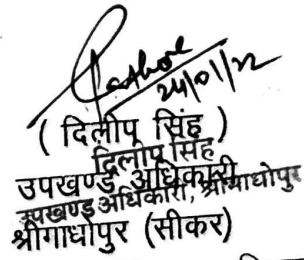 Rathore
24/01/22
( दिलीप सिंह )
दिलीप सिंह
उपखण्ड अधिकारी
उपखण्ड अधिकारी, श्रीमाधोपुर
श्रीमाधोपुर (सीकर)